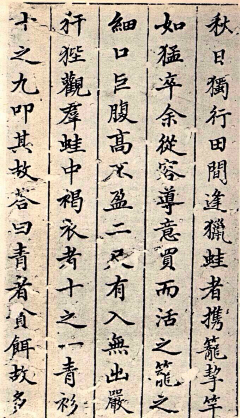 秋日獨行田間逢獵蛙者攜籠挈竿
如猛卒余從容導意買而活之籠之
細口巨腹高不盈二尺有入無出嚴
犴狴觀羣蛙中褐衣者十之一青衫
十之九叩其故答曰青者貪餌故多